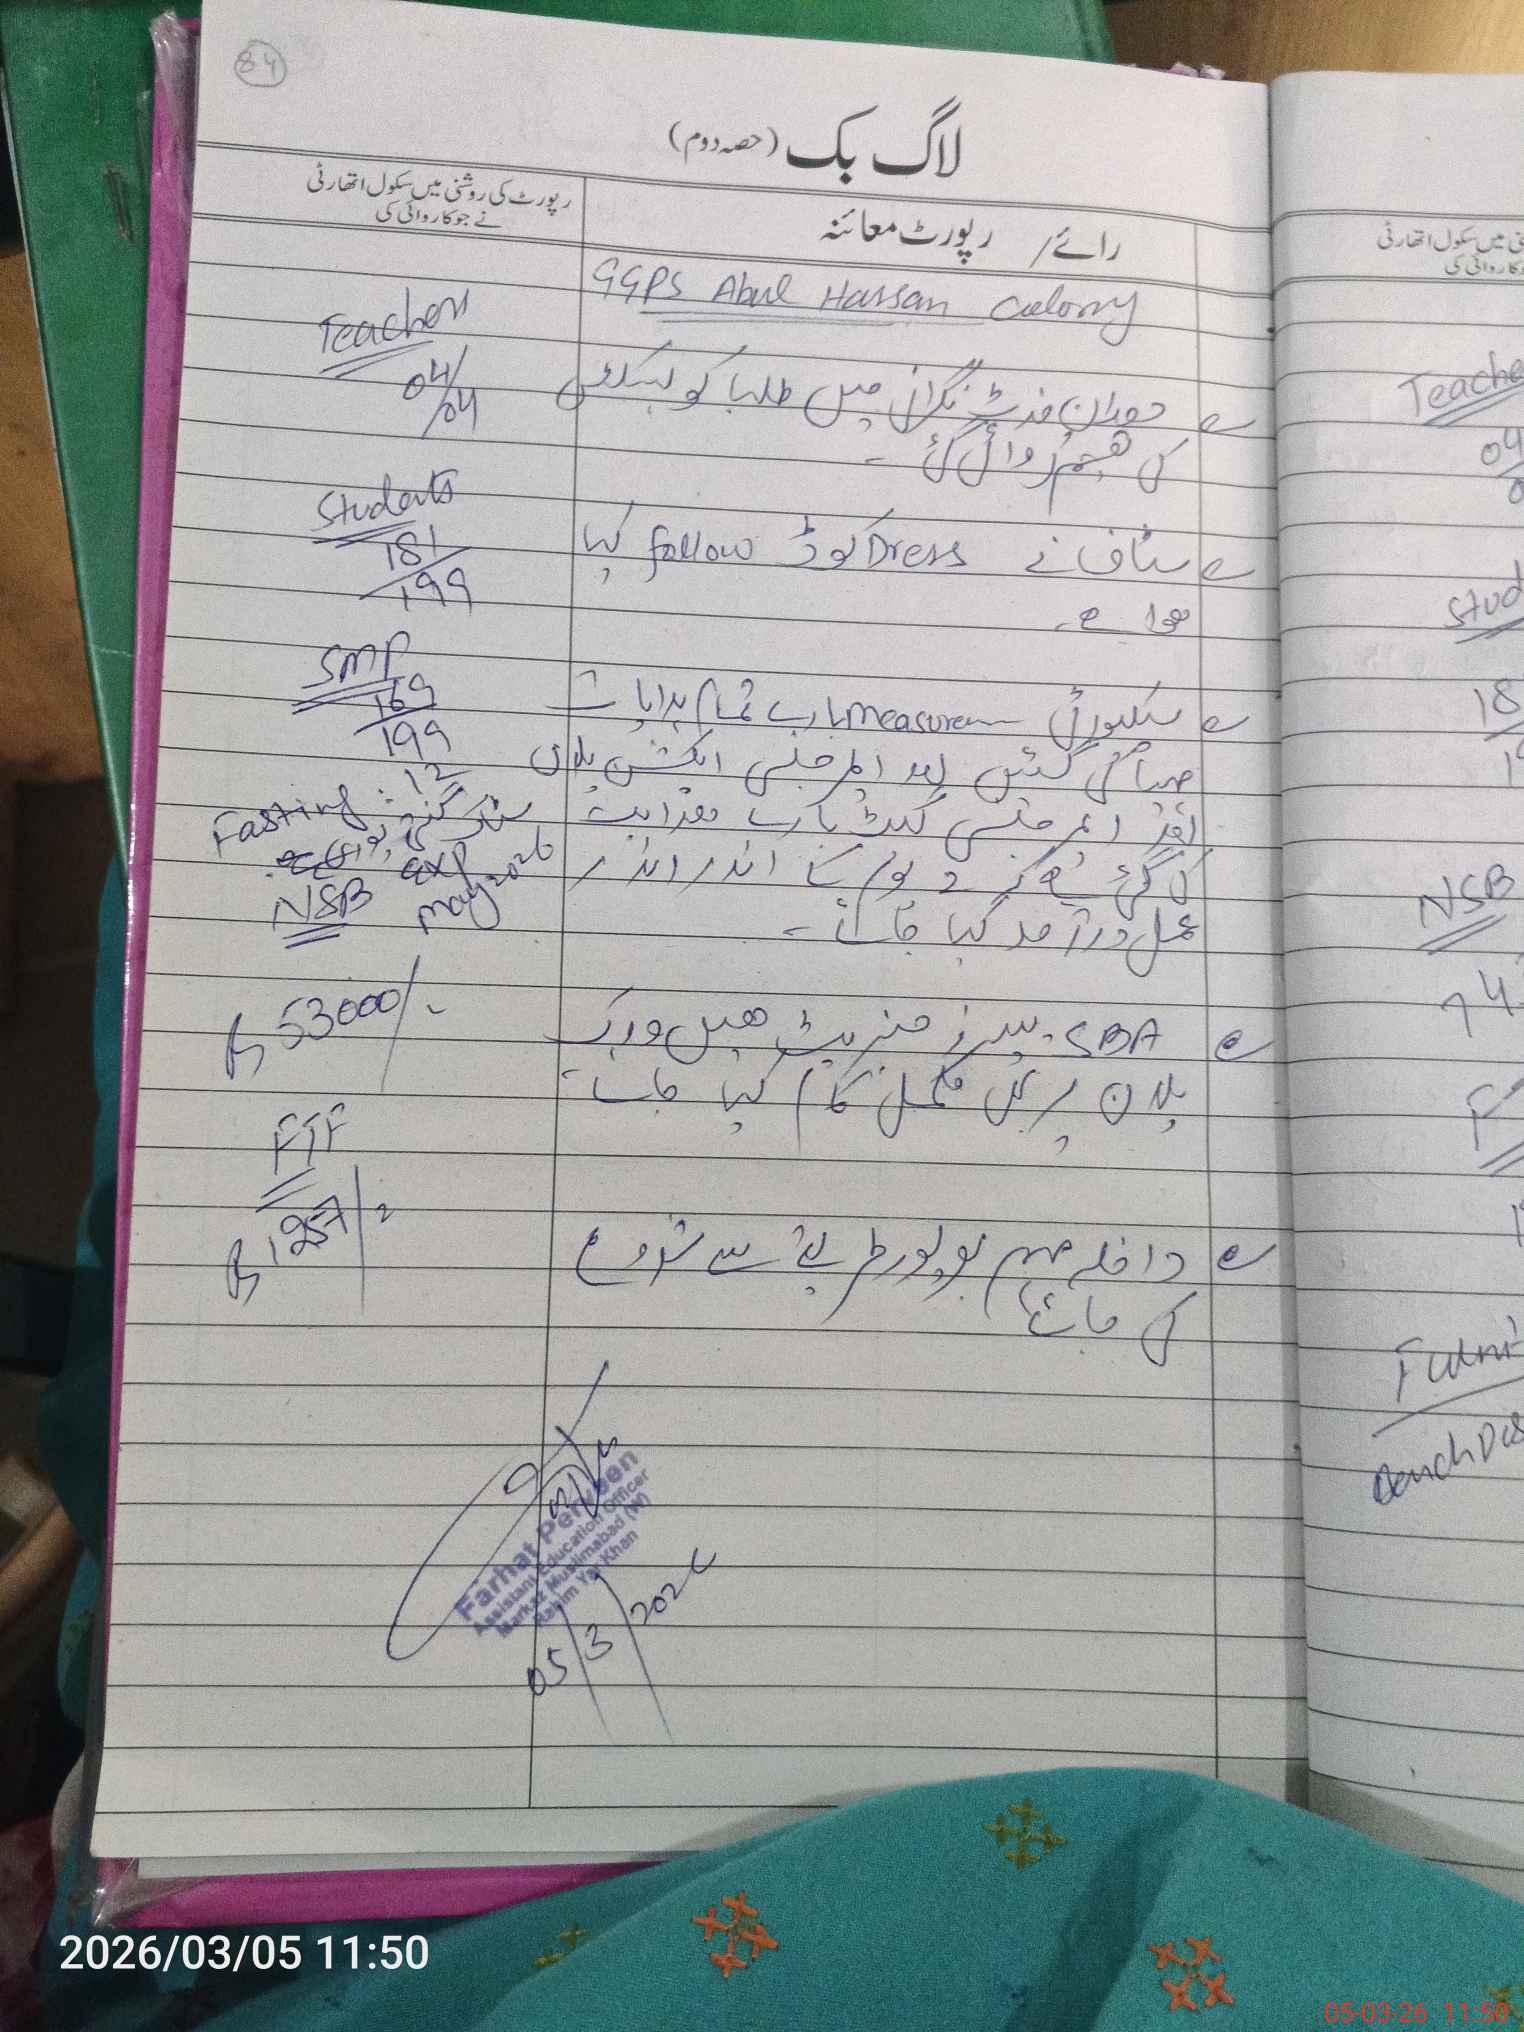 84
لاگ بک (حصہ دوم)
رائے / رپورٹ معائنہ
رپورٹ کی روشنی میں سکول اتھارٹی
نے جو کاروائی کی
GGPS Abul Hassan Colony
دوران وزٹ نگرانی میں طلبا کو بسکٹس
کی ہضم کروائی گئی -
سٹاف نے Dress کوڈ follow کیا
ہوا ہے -
سیکیورٹی measures بارے تمام ہدایات
مہیا کی گئیں اور ایمرجنسی ایکشن پلان
اور ایمرجنسی گیٹ بارے ہدایت
کی گئی ہے کہ 2 یوم کے اندر اندر
عمل درآمد کیا جائے -
SBA پیپرز جنریٹ ہیں ورک
پلان پر بھی مکمل کام کیا جائے -
داخلہ مہم بھرپور طریقے سے شروع
کی جائے
Teachers
04/04
Students
181/199
SMP
169/199
Fasting : 12
سٹاک گنتی پوری ہے
exp
May 2026
NSB
Rs 53000/-
FTF
Rs 1257/-
Farhat Perveen
Assistant Education Officer
Markaz Muslimabad (W)
Rahim Yar Khan
05/3/2026
میں سکول اتھارٹی
Teache
04
Stud
18
NSB
74
F
Furni
Bench Des
2026/03/05 11:50
05-03-26 11:50